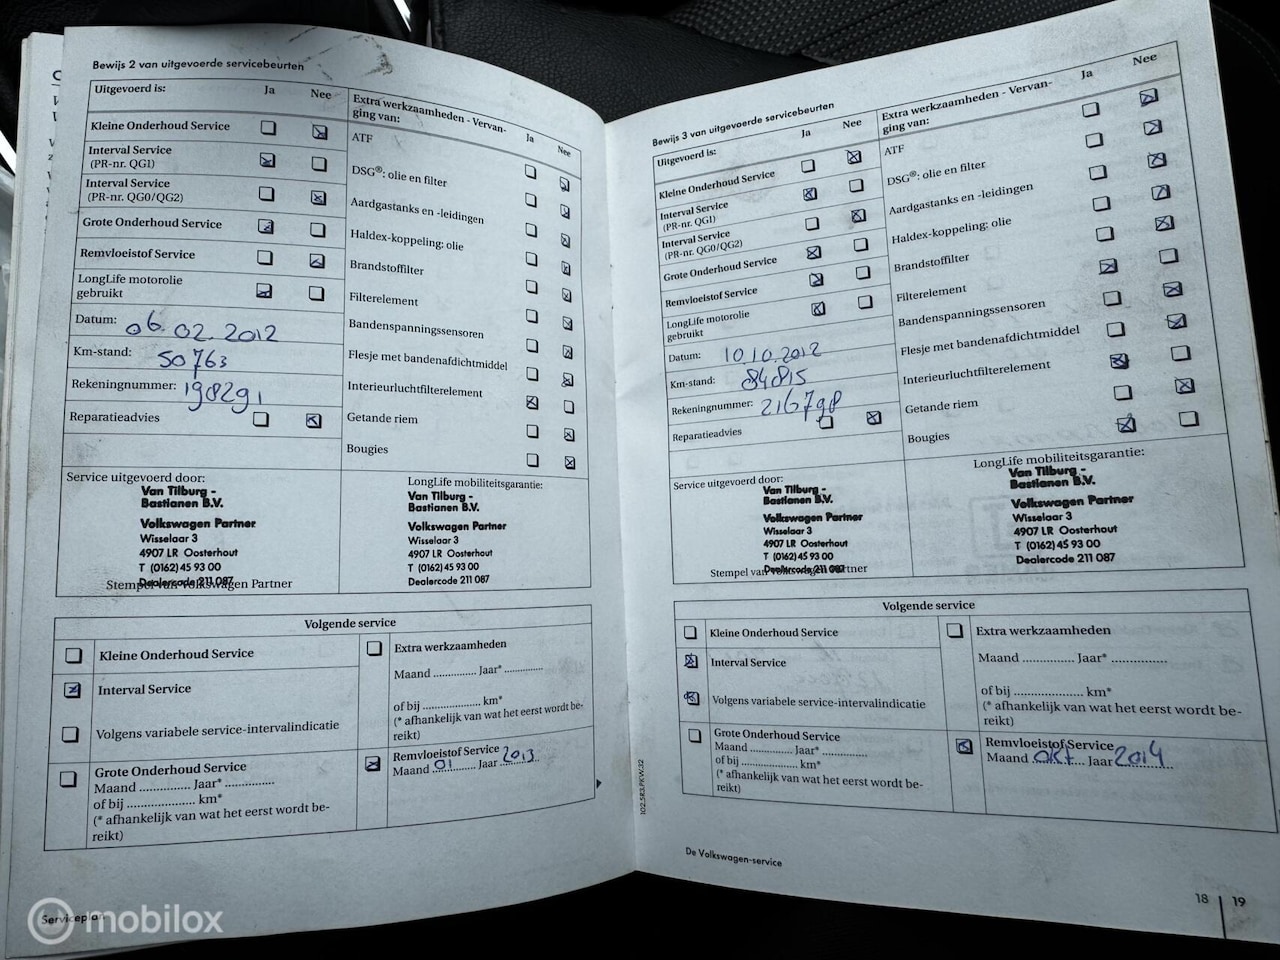 Bewijs 2 van uitgevoerde servicebeurten
Uitgevoerd is:
Ja
Nee
Kleine Onderhoud Service
Interval Service
(PR-nr. QG1)
Interval Service
(PR-nr. QG0/QG2)
Grote Onderhoud Service
Remvloeistof Service
LongLife motorolie
gebruikt
Datum: 06.02.2012
Km-stand: 50763
Rekeningnummer: 198291
Reparatieadvies
Extra werkzaamheden - Vervan-
ging van:
Ja
Nee
ATF
DSG®: olie en filter
Aardgastanks en -leidingen
Haldex-koppeling: olie
Brandstoffilter
Filterelement
Bandenspanningssensoren
Flesje met bandenafdichtmiddel
Interieurluchtfilterelement
Getande riem
Bougies
Service uitgevoerd door:
Van Tilburg -
Bastianen B.V.
Volkswagen Partner
Wisselaar 3
4907 LR Oosterhout
T (0162) 45 93 00
Dealercode 211 087
Stempel van Volkswagen Partner
LongLife mobiliteitsgarantie:
Van Tilburg -
Bastianen B.V.
Volkswagen Partner
Wisselaar 3
4907 LR Oosterhout
T (0162) 45 93 00
Dealercode 211 087
Volgende service
Kleine Onderhoud Service
Interval Service
Volgens variabele service-intervalindicatie
Grote Onderhoud Service
Maand .............. Jaar* ..............
of bij .................... km*
(* afhankelijk van wat het eerst wordt be-
reikt)
Extra werkzaamheden
Maand .............. Jaar* ..............
of bij .................... km*
(* afhankelijk van wat het eerst wordt be-
reikt)
Remvloeistof Service
Maand 01 Jaar 2013
Serviceplan
Bewijs 3 van uitgevoerde servicebeurten
Uitgevoerd is:
Ja
Nee
Kleine Onderhoud Service
Interval Service
(PR-nr. QG1)
Interval Service
(PR-nr. QG0/QG2)
Grote Onderhoud Service
Remvloeistof Service
LongLife motorolie
gebruikt
Datum: 10.10.2012
Km-stand: 84815
Rekeningnummer: 216798
Reparatieadvies
Extra werkzaamheden - Vervan-
ging van:
Ja
Nee
ATF
DSG®: olie en filter
Aardgastanks en -leidingen
Haldex-koppeling: olie
Brandstoffilter
Filterelement
Bandenspanningssensoren
Flesje met bandenafdichtmiddel
Interieurluchtfilterelement
Getande riem
Bougies
Service uitgevoerd door:
Van Tilburg -
Bastianen B.V.
Volkswagen Partner
Wisselaar 3
4907 LR Oosterhout
T (0162) 45 93 00
Dealercode 211 087
Stempel van Volkswagen Partner
LongLife mobiliteitsgarantie:
Van Tilburg -
Bastianen B.V.
Volkswagen Partner
Wisselaar 3
4907 LR Oosterhout
T (0162) 45 93 00
Dealercode 211 087
Volgende service
Kleine Onderhoud Service
Interval Service
Volgens variabele service-intervalindicatie
Grote Onderhoud Service
Maand .............. Jaar* ..............
of bij .................... km*
(* afhankelijk van wat het eerst wordt be-
reikt)
Extra werkzaamheden
Maand .............. Jaar* ..............
of bij .................... km*
(* afhankelijk van wat het eerst wordt be-
reikt)
Remvloeistof Service
Maand okt Jaar 2014
102.5R3.PKW.32
De Volkswagen-service
18 | 19
mobilox